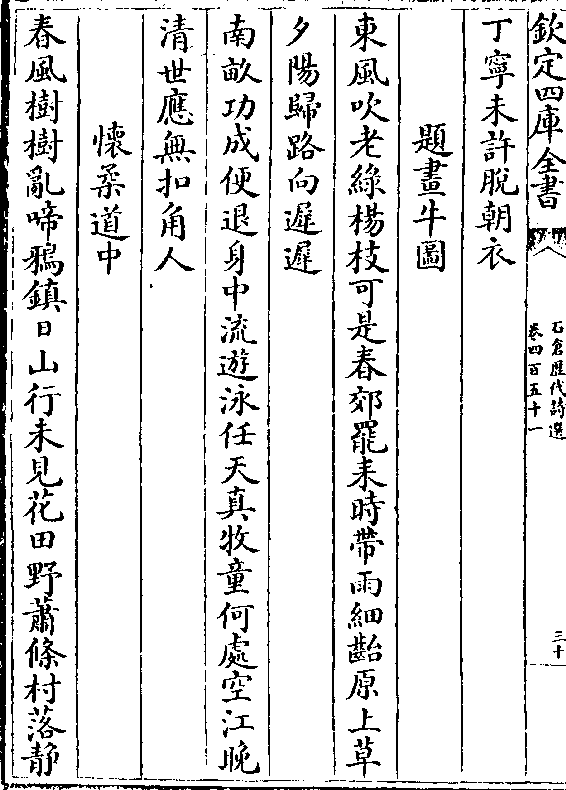 欽定四庫全書
石倉歴代詩選
卷四百五十一
三十
丁寧未許脫朝衣
題畫牛圖
東風吹老綠楊枝可是春郊罷耒時帶雨細齝原上草
夕陽歸路向遲遲
南畝功成便退身中流遊泳任天真牧童何處空江晚
清世應無扣角人
懷柔道中
春風樹樹亂啼鴉鎮日山行未見花田野蕭條村落静